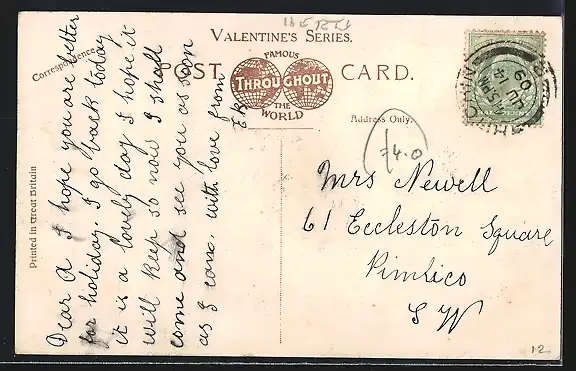 VALENTINE'S SERIES.
POST CARD.
FAMOUS
THROUGHOUT
THE
WORLD
Correspondence.
Address Only.
Printed in Great Britain
Dear A I hope you are better
for holiday. I go back today
it is a lovely day I hope it
will keep so now I shall
come and see you as soon
as I can. with love from
74.0
Mrs Newell
61 Eccleston Square
Pimlico
S W
JU 14
09
12